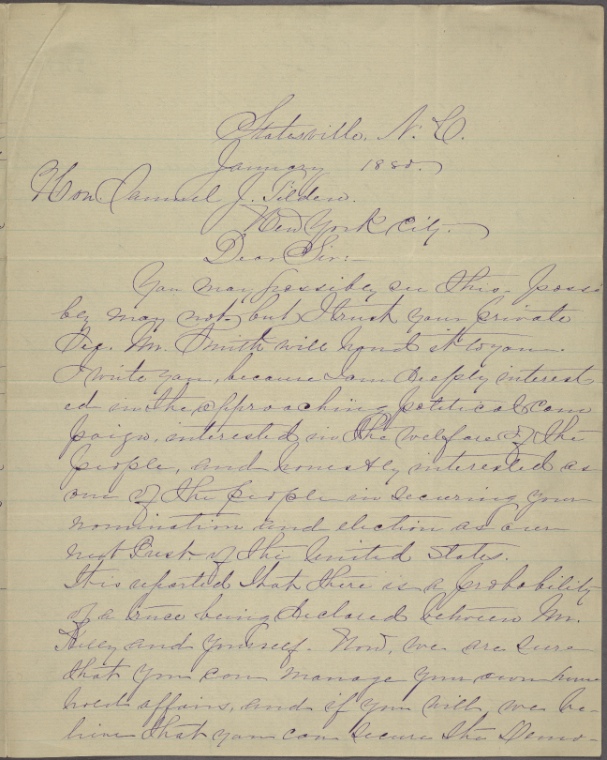 Statesville, N. C.
January 1880.
Hon Samuel J. Tilden.
New York City.
Dear Sir:-
You may possibly see this. Possi
bly may not, but I trust your private
Sec. Mr. Smith will hand it to you.
I write you, because I am deeply interest
ed in the approaching political cam
paign, interested in the welfare of the
people, and honestly interested as
one of the people in securing your
nomination and election as our
next Prest. of the United States.
It is reported that there is a probability
of a truce being declared between Mr.
and yourself. Now, we are sure
that you can manage your own house
hold affairs, and if you will, we be-
lieve that you can secure the Demo-